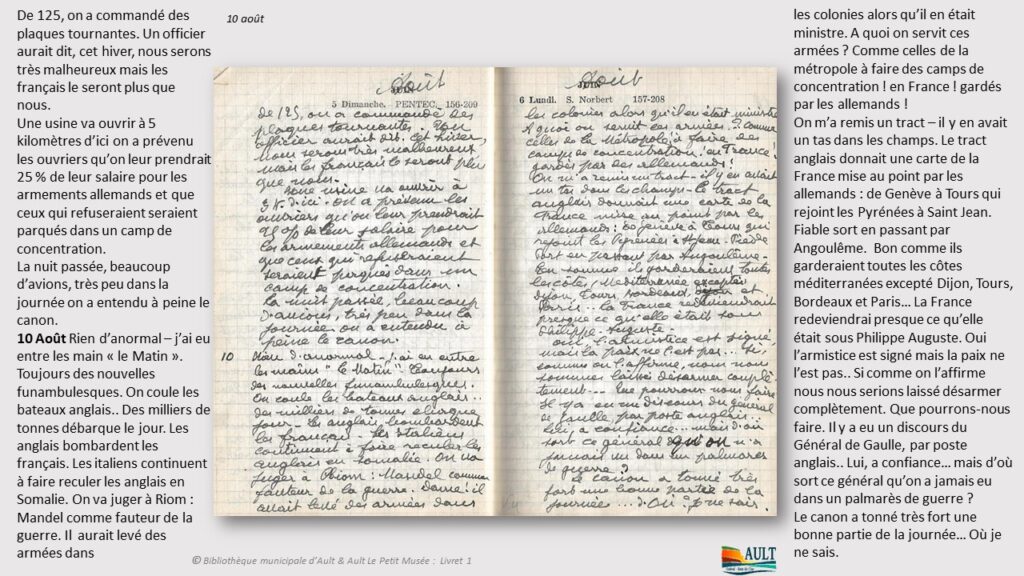 De 125, on a commandé des
plaques tournantes. Un officier
aurait dit, cet hiver, nous serons
très malheureux mais les
français le seront plus que
nous.
Une usine va ouvrir à 5
kilomètres d'ici on a prévenu
les ouvriers qu'on leur prendrait
25 % de leur salaire pour les
armements allemands et que
ceux qui refuseraient seraient
parqués dans un camp de
concentration.
La nuit passée, beaucoup
d'avions, très peu dans la
journée on a entendu à peine le
canon.
10 Août Rien d'anormal – j'ai eu
entre les main « le Matin ».
Toujours des nouvelles
funambulesques. On coule les
bateaux anglais.. Des milliers de
tonnes débarque le jour. Les
anglais bombardent les
français. Les italiens continuent
à faire reculer les anglais en
Somalie. On va juger à Riom :
Mandel comme fauteur de la
guerre. Il aurait levé des
armées dans
10 août
Août
5 Dimanche. PENTEC. 156-209
de 125, on a commandé des
plaques tournantes. Un
officier aurait dit. Cet hiver,
nous serons très malheureux
mais les français le seront plus
que nous.
Une usine va ouvrir à
5 K d'ici. on a prévenu les
ouvriers qu'on leur prendrait
25 % de leur salaire pour
les armements allemands et
que ceux qui refuseraient
seraient parqués dans un
camp de concentration.
La nuit passée, beaucoup
d'avions, très peu dans la
journée on a entendu à
peine le canon.
10 Rien d'anormal – j'ai eu entre
les mains "Le Matin". Toujours
des nouvelles funambulesques.
On coule les bateaux anglais..
des milliers de tonnes chaque
jour. Les anglais bombardent
les français. Les Italiens
continuent à faire reculer les
anglais en Somalie. On va
juger à Riom : Mandel comme
fauteur de la guerre. Dame! il
avait levé des armées dans
Août
6 Lundi. S. Norbert 157-208
les colonies alors qu'il en était ministre
A quoi on servit ces armées ? Comme
celles de la Métropole à faire des
camps de concentration! en France!
gardés par des allemands!
On m'a remis un tract – il y en avait
un tas dans les champs – Le tract
anglais donnait une carte de la
France mise au point par les
allemands : de Genève à Tours qui
rejoint les Pyrénées à St Jean. Pied de
Port en passant par Angoulême.
En somme ils garderaient toutes
les côtes, Méditerranée exceptée
Dijon, Tours, Bordeaux, et
Paris.. la France redeviendrait
presque ce qu'elle était sous
Philippe-Auguste.
Oui l'armistice est signé,
mais la paix ne l'est pas.. Si,
comme on l'affirme, nous nous
sommes laissés désarmer complè-
tement... Que pourrons nous faire
Il y a eu un discours du général
de Gaulle par poste anglais..
Lui, a confiance... mais d'où
sort ce général qu'on n'a
jamais vu dans un palmarès
de guerre ?
Le canon a tonné très
fort une bonne partie de la
journée... d'Où? Je ne sais.
les colonies alors qu'il en était
ministre. A quoi on servit ces
armées ? Comme celles de la
métropole à faire des camps de
concentration ! en France ! gardés
par les allemands !
On m'a remis un tract – il y en avait
un tas dans les champs. Le tract
anglais donnait une carte de la
France mise au point par les
allemands : de Genève à Tours qui
rejoint les Pyrénées à Saint Jean.
Fiable sort en passant par
Angoulême. Bon comme ils
garderaient toutes les côtes
méditerranées excepté Dijon, Tours,
Bordeaux et Paris... La France
redeviendrai presque ce qu'elle
était sous Philippe Auguste. Oui
l'armistice est signé mais la paix ne
l'est pas.. Si comme on l'affirme
nous nous serions laissé désarmer
complètement. Que pourrons-nous
faire. Il y a eu un discours du
Général de Gaulle, par poste
anglais.. Lui, a confiance... mais d'où
sort ce général qu'on a jamais eu
dans un palmarès de guerre ?
Le canon a tonné très fort une
bonne partie de la journée... Où je
ne sais.
© Bibliothèque municipale d'Ault & Ault Le Petit Musée : Livret 1
AULT